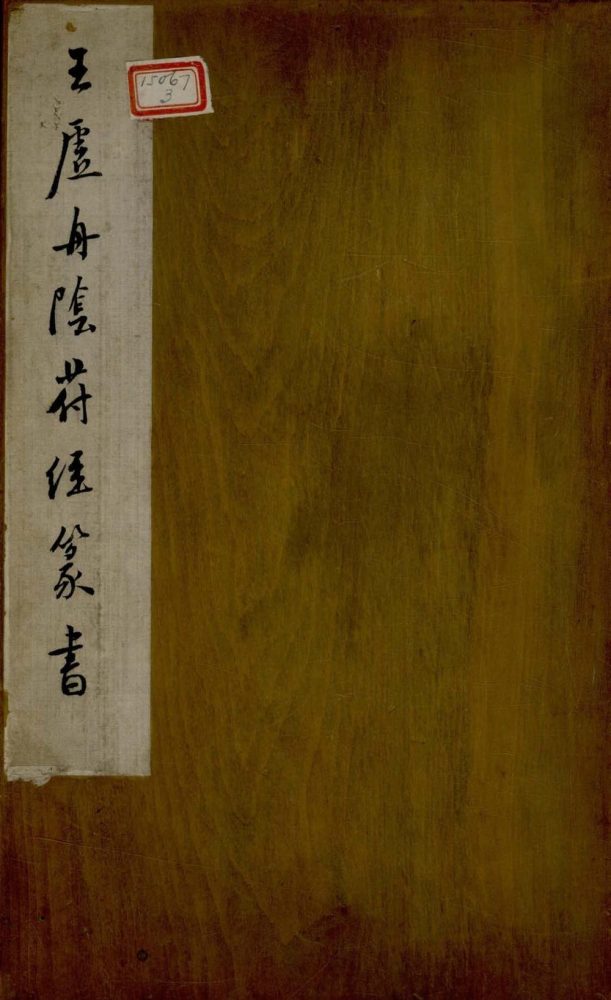 王虛舟陰符經篆書
15067
3